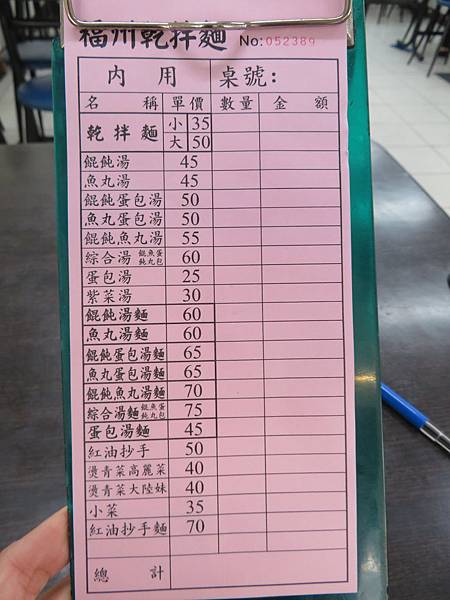 福州乾拌麵 No:052389
內用 桌號:
名稱 單價 數量 金額
乾拌麵 小 35
大 50
餛飩湯 45
魚丸湯 45
餛飩蛋包湯 50
魚丸蛋包湯 50
餛飩魚丸湯 55
綜合湯 餛魚蛋飩丸包 60
蛋包湯 25
紫菜湯 30
餛飩湯麵 60
魚丸湯麵 60
餛飩蛋包湯麵 65
魚丸蛋包湯麵 65
餛飩魚丸湯麵 70
綜合湯麵 餛魚蛋飩丸包 75
蛋包湯麵 45
紅油抄手 50
燙青菜高麗菜 40
燙青菜大陸妹 40
小菜 35
紅油抄手麵 70
總計